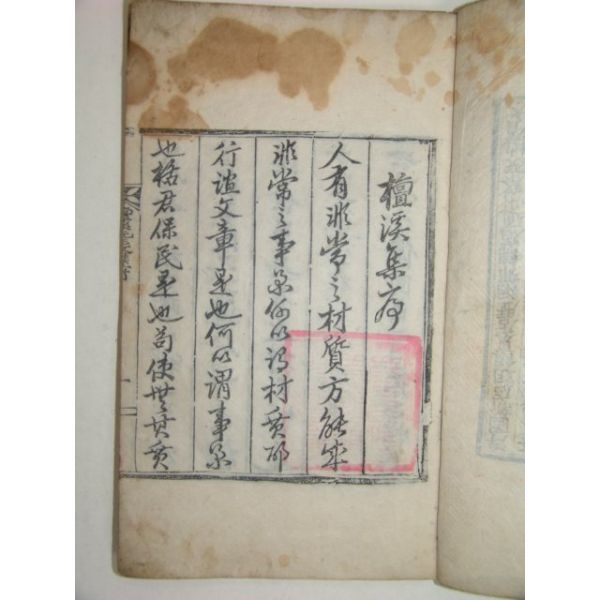 檀溪集序
人有非常之材質方能成
非常之事業何以謂材質邪
行誼文章是也何以謂事業
也格君保民是也苟使世其質